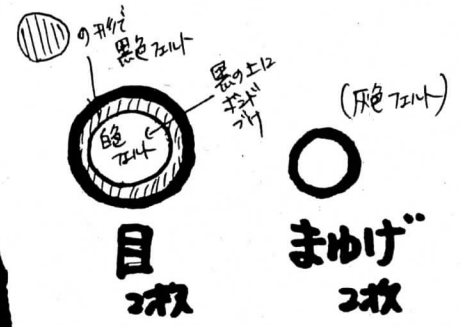 の形で
黒色フェルト
黒の上に
ボンド
づけ
白色
フェルト
目
2枚
(灰色フェルト)
まゆげ
2枚